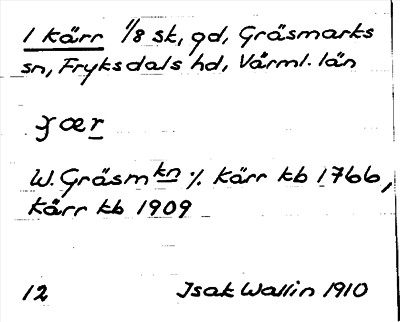 1 Kärr 1/8 sk, gd, Gräsmarks
sn, Fryksdals hd, Värml. län
ꝣær
W. Gräsm kn ⁒ Kärr kb 1766,
Kärr kb 1909
12 Isak Wallin 1910